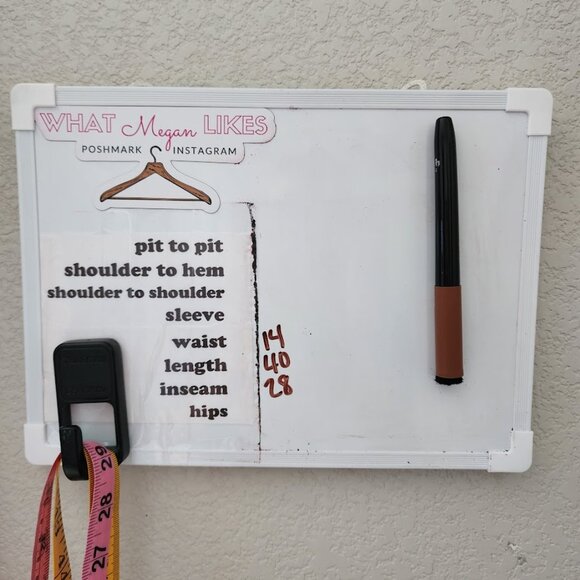 WHAT Megan LIKES
POSHMARK INSTAGRAM
pit to pit
shoulder to hem
shoulder to shoulder
sleeve
waist 14
length 40
inseam 28
hips
29
28
27